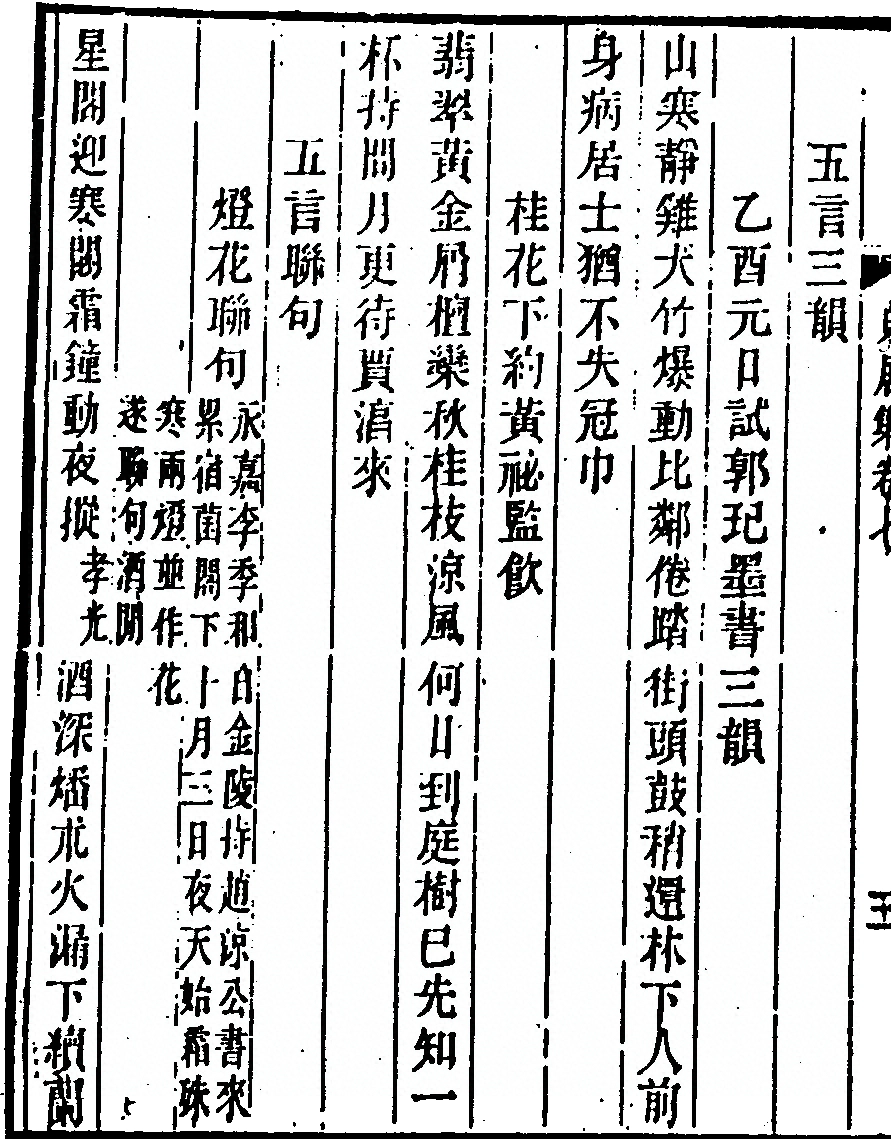 五言三韻
乙酉元日試郭玘墨書三韻
山寒靜雞犬竹爆動比鄰倦踏街頭鼓稍還林下人前
身病居士猶不失冠巾
桂花下約黃祕監飲
翡翠黃金屑檀欒秋桂枝涼風何日到庭樹已先知一
杯持問月更待賈來
五言聯句
燈花聯句
永嘉李季和自金陵持趙涼公書來
累宿菌閣下十月三日夜天始霜殊
寒兩燈並作花
遂聯句酒閒
星閣迎寒霜鐘動夜摐孝光酒深燔朮火漏下續蘭